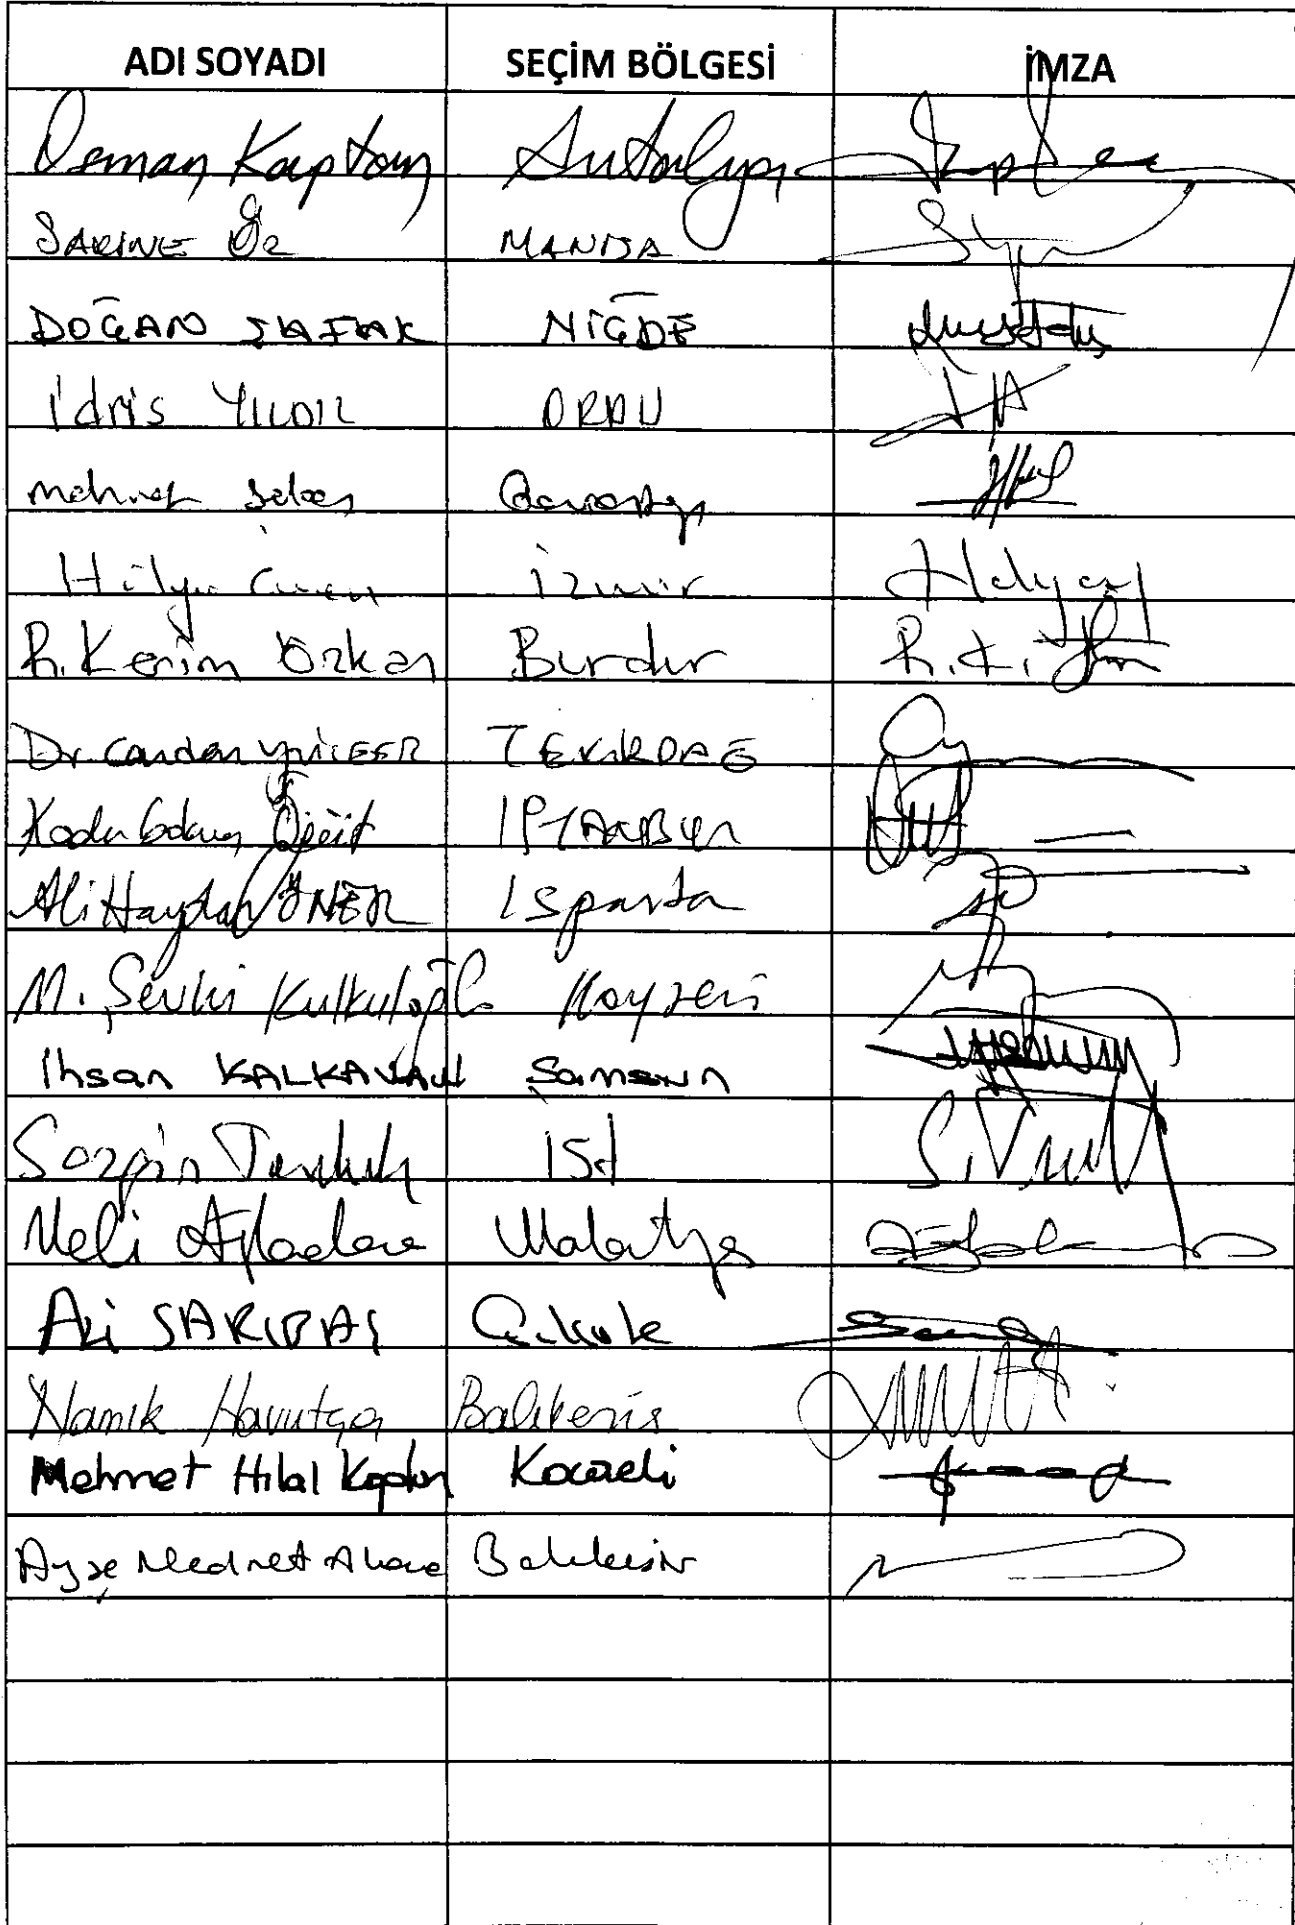 ADI SOYADI SEÇİM BÖLGESİ İMZA
Osman Kaptan Antalya
SAKINE Öz MANİSA
DOĞAN ŞAFAK NİĞDE
İdris YILDIZ ORDU
Mehmet Şeker Gaziantep
Hülya Güven İzmir
R. Kerim Özkan Burdur R.K.
Dr. Candan YÜCEER TEKİRDAĞ
Kadir Gökmen Öğüt İSTANBUL
Ali Haydar ÖNER Isparta
M. Şevki Kulkuloğlu Kayseri
İhsan KALKAVAN Samsun
Sezgin Tanrıkulu İst
Veli Ağbaba Malatya
Ali SARIBAŞ Ç.kale
Namık Havutça Balıkesir
Mehmet Hilal Kaplan Kocaeli
Ayşe Nedret Akova Balıkesir